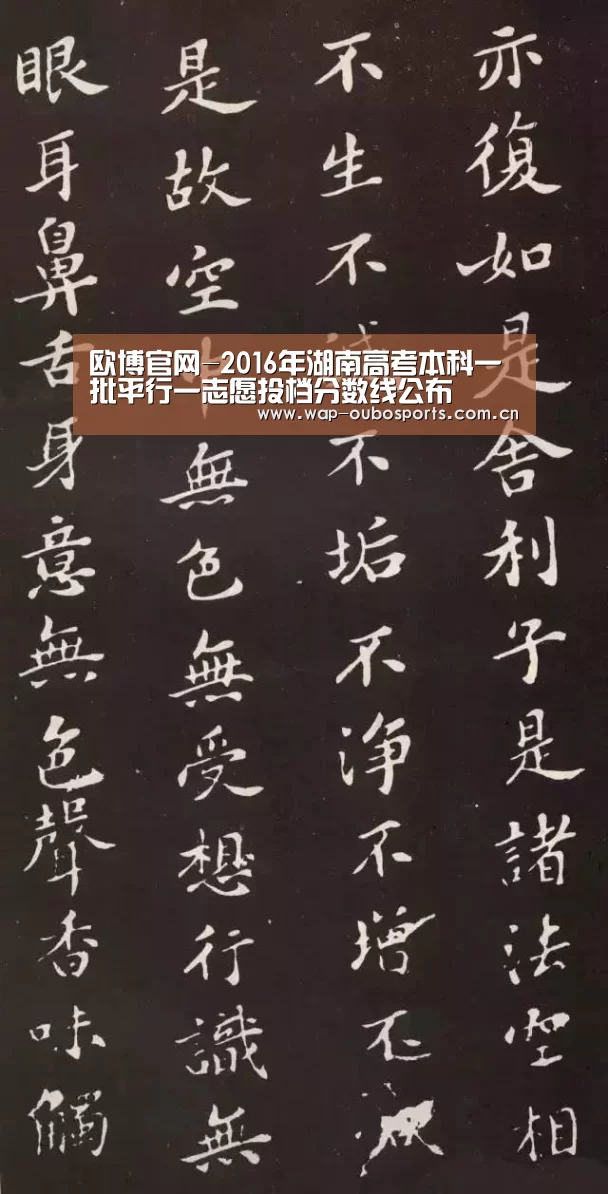 亦復如是舍利子是諸法空相
不生不滅不垢不淨不增不減
是故空中無色無受想行識無
眼耳鼻舌身意無色聲香味觸
欧博官网-2016年湖南高考本科一
批平行一志愿投档分数线公布
www.wap-oubosports.com.cn